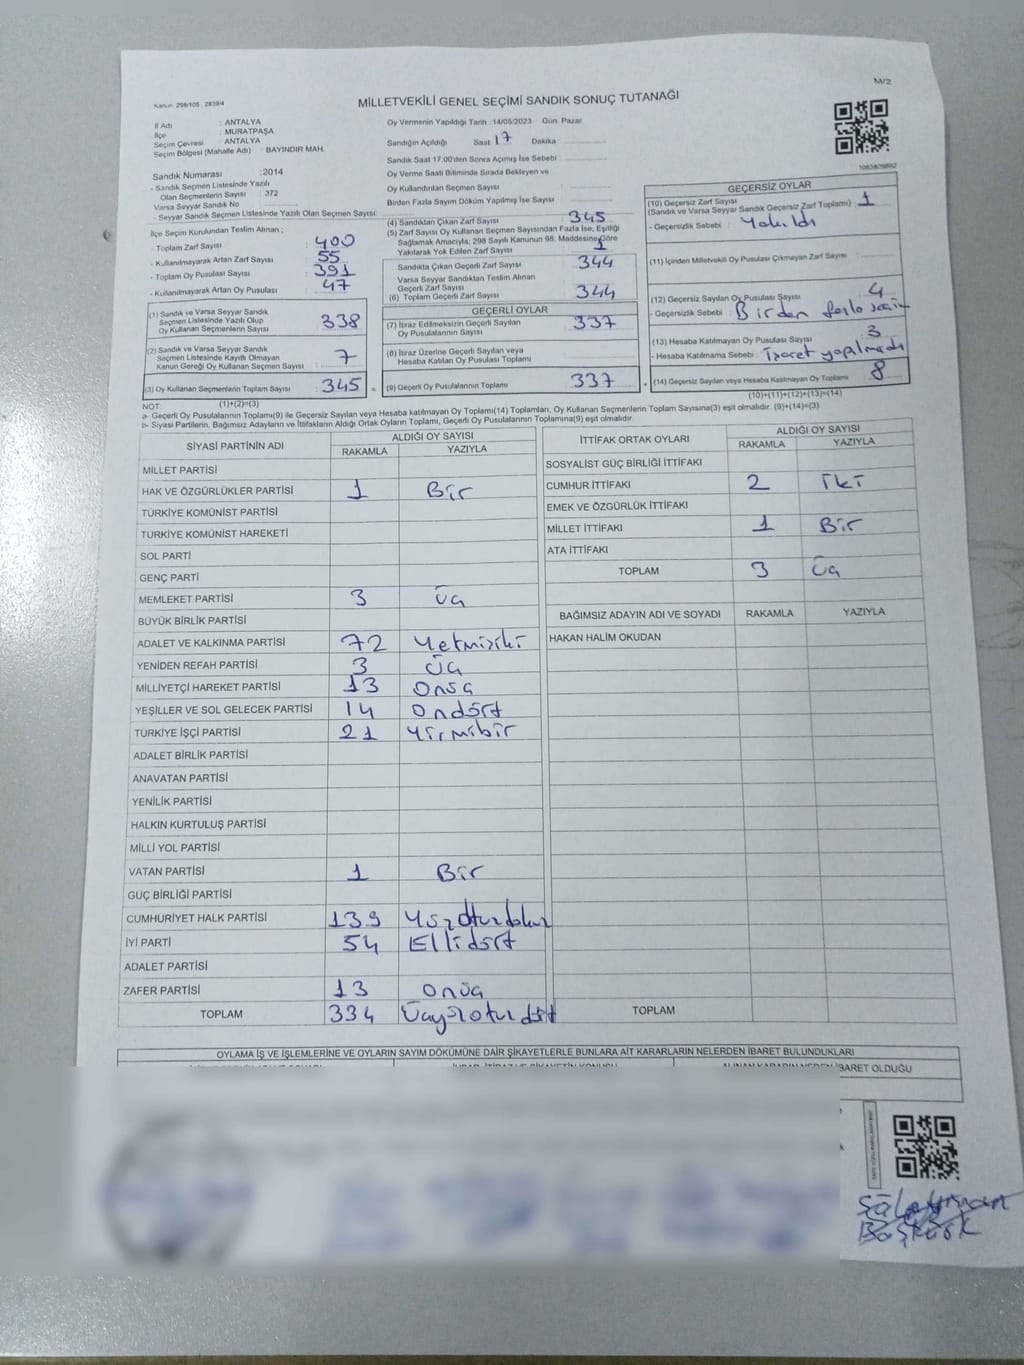 M/2
Kanun: 298/105 , 2839/4
MİLLETVEKİLİ GENEL SEÇİMİ SANDIK SONUÇ TUTANAĞI
İl Adı : ANTALYA
İlçe : MURATPAŞA
Seçim Çevresi : ANTALYA
Seçim Bölgesi (Mahalle Adı) : BAYINDIR MAH.
Sandık Numarası : 2014
- Sandık Seçmen Listesinde Yazılı
Olan Seçmenlerin Sayısı : 372
Varsa Seyyar Sandık No
- Seyyar Sandık Seçmen Listesinde Yazılı Olan Seçmen Sayısı:
İlçe Seçim Kurulundan Teslim Alınan ;
- Toplam Zarf Sayısı : 400
- Kullanılmayarak Artan Zarf Sayısı : 55
- Toplam Oy Pusulası Sayısı : 391
- Kullanılmayarak Artan Oy Pusulası : 47
(1) Sandık ve Varsa Seyyar Sandık
Seçmen Listesinde Yazılı Olup
Oy Kullanan Seçmenlerin Sayısı 338
(2) Sandık ve Varsa Seyyar Sandık
Seçmen Listesinde Kayıtlı Olmayan
Kanun Gereği Oy Kullanan Seçmen Sayısı 7
(3) Oy Kullanan Seçmenlerin Toplam Sayısı 345 =
(1)+(2)=(3)
Oy Vermenin Yapıldığı Tarih :14/05/2023 Gün: Pazar
Sandığın Açıldığı Saat: 17 Dakika
Sandık Saat 17:00'den Sonra Açılmış İse Sebebi :
Oy Verme Saati Bitiminde Sırada Bekleyen ve
Oy Kullandırılan Seçmen Sayısı
Birden Fazla Sayım Döküm Yapılmış İse Sayısı
(4) Sandıktan Çıkan Zarf Sayısı : 345
(5) Zarf Sayısı Oy Kullanan Seçmen Sayısından Fazla İse, Eşitliği
Sağlamak Amacıyla; 298 Sayılı Kanunun 98. Maddesine Göre
Yakılarak Yok Edilen Zarf Sayısı 1
Sandıkta Çıkan Geçerli Zarf Sayısı 344
Varsa Seyyar Sandıktan Teslim Alınan
Geçerli Zarf Sayısı
(6) Toplam Geçerli Zarf Sayısı 344
GEÇERLİ OYLAR
(7) İtiraz Edilmeksizin Geçerli Sayılan
Oy Pusulalarının Sayısı 337
(8) İtiraz Üzerine Geçerli Sayılan veya
Hesaba Katılan Oy Pusulası Toplamı
(9) Geçerli Oy Pusulalarının Toplamı 337 +
1083809892
GEÇERSİZ OYLAR
(10) Geçersiz Zarf Sayısı
(Sandık ve Varsa Seyyar Sandık Geçersiz Zarf Toplamı) 1
- Geçersizlik Sebebi : Yakıldı
(11) İçinden Milletvekili Oy Pusulası Çıkmayan Zarf Sayısı
(12) Geçersiz Sayılan Oy Pusulası Sayısı 4
- Geçersizlik Sebebi : Birden fazla seçim
(13) Hesaba Katılmayan Oy Pusulası Sayısı 3
- Hesaba Katılmama Sebebi : İşaret yapılmadı
(14) Geçersiz Sayılan veya Hesaba Katılmayan Oy Toplamı 8
(10)+(11)+(12)+(13)=(14)
NOT:
a- Geçerli Oy Pusulalarının Toplamı(9) ile Geçersiz Sayılan veya Hesaba katılmayan Oy Toplamı(14) Toplamları, Oy Kullanan Seçmenlerin Toplam Sayısına(3) eşit olmalıdır. (9)+(14)=(3)
b- Siyasi Partilerin, Bağımsız Adayların ve İttifakların Aldığı Ortak Oyların Toplamı, Geçerli Oy Pusulalarının Toplamına(9) eşit olmalıdır.
SİYASİ PARTİNİN ADI ALDIĞI OY SAYISI
RAKAMLA YAZIYLA
MİLLET PARTİSİ
HAK VE ÖZGÜRLÜKLER PARTİSİ 1 Bir
TÜRKİYE KOMÜNİST PARTİSİ
TÜRKİYE KOMÜNİST HAREKETİ
SOL PARTİ
GENÇ PARTİ
MEMLEKET PARTİSİ 3 Üç
BÜYÜK BİRLİK PARTİSİ
ADALET VE KALKINMA PARTİSİ 72 Yetmişiki
YENİDEN REFAH PARTİSİ 3 Üç
MİLLİYETÇİ HAREKET PARTİSİ 13 Onüç
YEŞİLLER VE SOL GELECEK PARTİSİ 14 Ondört
TÜRKİYE İŞÇİ PARTİSİ 21 Yirmibir
ADALET BİRLİK PARTİSİ
ANAVATAN PARTİSİ
YENİLİK PARTİSİ
HALKIN KURTULUŞ PARTİSİ
MİLLİ YOL PARTİSİ
VATAN PARTİSİ 1 Bir
GÜÇ BİRLİĞİ PARTİSİ
CUMHURİYET HALK PARTİSİ 139 Yüzotuzdokuz
İYİ PARTİ 54 Ellidört
ADALET PARTİSİ
ZAFER PARTİSİ 13 Onüç
TOPLAM 334 Üçyüzotuzdört
İTTİFAK ORTAK OYLARI ALDIĞI OY SAYISI
RAKAMLA YAZIYLA
SOSYALİST GÜÇ BİRLİĞİ İTTİFAKI
CUMHUR İTTİFAKI 2 İki
EMEK VE ÖZGÜRLÜK İTTİFAKI
MİLLET İTTİFAKI 1 Bir
ATA İTTİFAKI
TOPLAM 3 Üç
BAĞIMSIZ ADAYIN ADI VE SOYADI RAKAMLA YAZIYLA
HAKAN HALİM OKUDAN
TOPLAM
OYLAMA İŞ VE İŞLEMLERİNE VE OYLARIN SAYIM DÖKÜMÜNE DAİR ŞİKAYETLERLE BUNLARA AİT KARARLARIN NELERDEN İBARET BULUNDUKLARI
ALINAN KARARIN NEDEN İBARET OLDUĞU